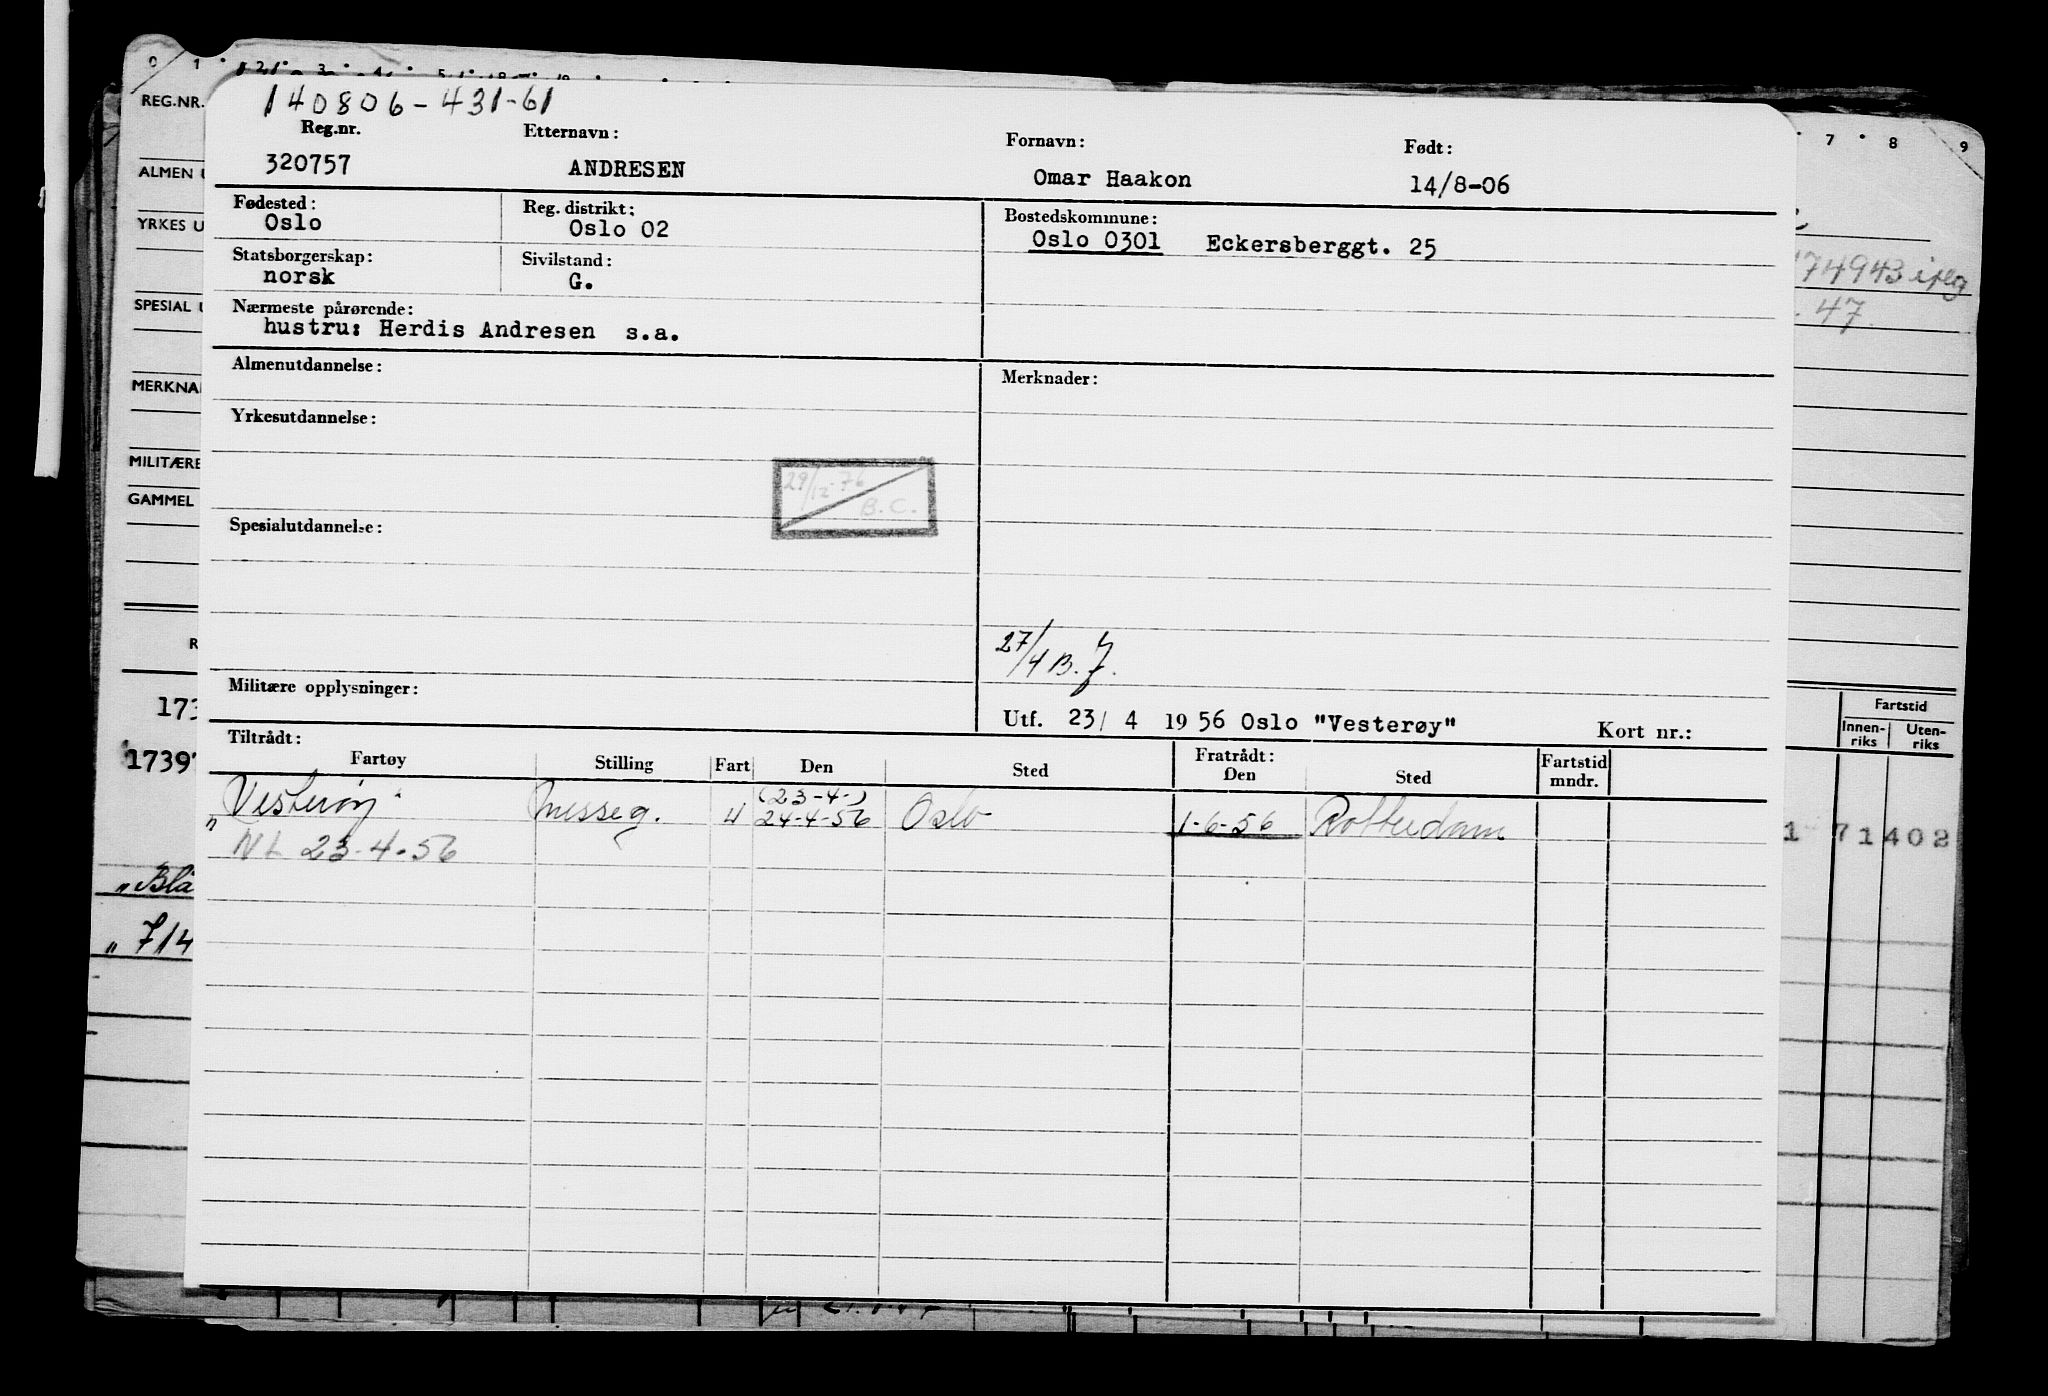 0 1 2 3 4 5
140806-431-61
REG.NR.
Reg.nr. Etternavn: Fornavn: Født: 7 8 9
320757 ANDRESEN Omar Haakon 14/8-06
ALMEN U
Fødested: Reg. distrikt: Bostedskommune:
Oslo Oslo 02 Oslo 0301 Eckersberggt. 25
YRKES U
Statsborgerskap: Sivilstand:
norsk G.
174943
SPESIAL U
Nærmeste pårørende:
hustru: Herdis Andresen s.a.
47
Almenutdannelse: Merknader:
MERKNA
Yrkesutdannelse:
MILITÆRE
29/12-76
B.C.
GAMMEL
Spesialutdannelse:
27/4 B.J.
R
Militære opplysninger:
173 Utf. 23/ 4 19 56 Oslo "Vesterøy" Kort nr.: Fartstid
Innen-riks Uten-riks
Tiltrådt: Fratrådt:
1739 Fartøy Stilling Fart Den Sted Den Sted Fartstid mndr.
(23-4-)
"Vesterøy" messeg. U 24-4-56 Oslo 1-6-56 Rotterdam
NL 23-4-56
1 71402
"Blå
" 714